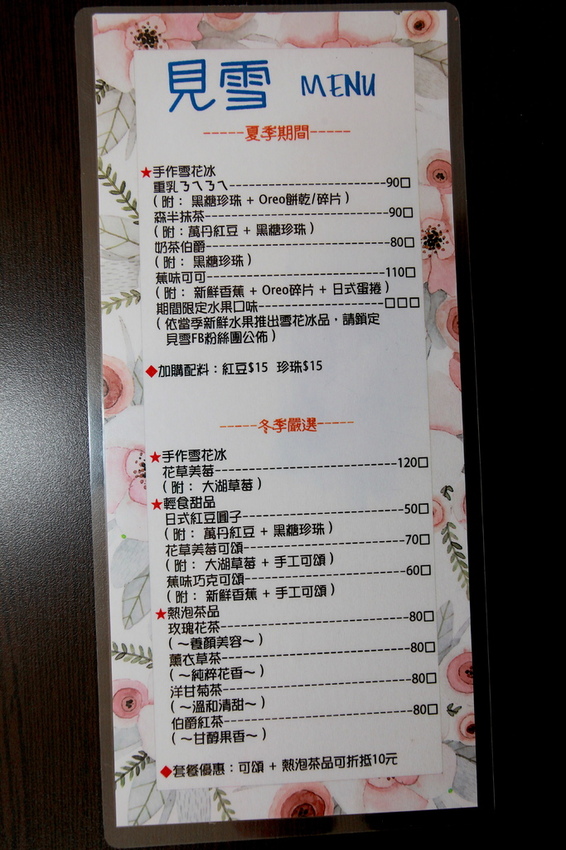 見雪 MENU
-----夏季期間-----
★手作雪花冰
重乳ㄋㄟㄋㄟ--------------------90□
（附： 黑糖珍珠 + Oreo餅乾/碎片）
森半抹茶--------------------90□
（附：萬丹紅豆 + 黑糖珍珠）
奶茶伯爵--------------------80□
（附： 黑糖珍珠）
蕉味可可--------------------110□
（附： 新鮮香蕉 + Oreo碎片 + 日式蛋捲）
期間限定水果口味--------------------□□□
（依當季新鮮水果推出雪花冰品，請鎖定
見雪FB粉絲團公佈）
◆加購配料：紅豆$15 珍珠$15
-----冬季嚴選-----
★手作雪花冰
花草美莓--------------------120□
（附： 大湖草莓）
★輕食甜品
日式紅豆圓子--------------------50□
（附： 萬丹紅豆 + 黑糖珍珠）
花草美莓可頌--------------------70□
（附： 大湖草莓 + 手工可頌）
蕉味巧克可頌--------------------60□
（附： 新鮮香蕉 + 手工可頌）
★熱泡茶品
玫瑰花茶--------------------80□
（～養顏美容～）
薰衣草茶--------------------80□
（～純粹花香～）
洋甘菊茶--------------------80□
（～溫和清甜～）
伯爵紅茶--------------------80□
（～甘醇果香～）
◆套餐優惠：可頌 + 熱泡茶品可折抵10元